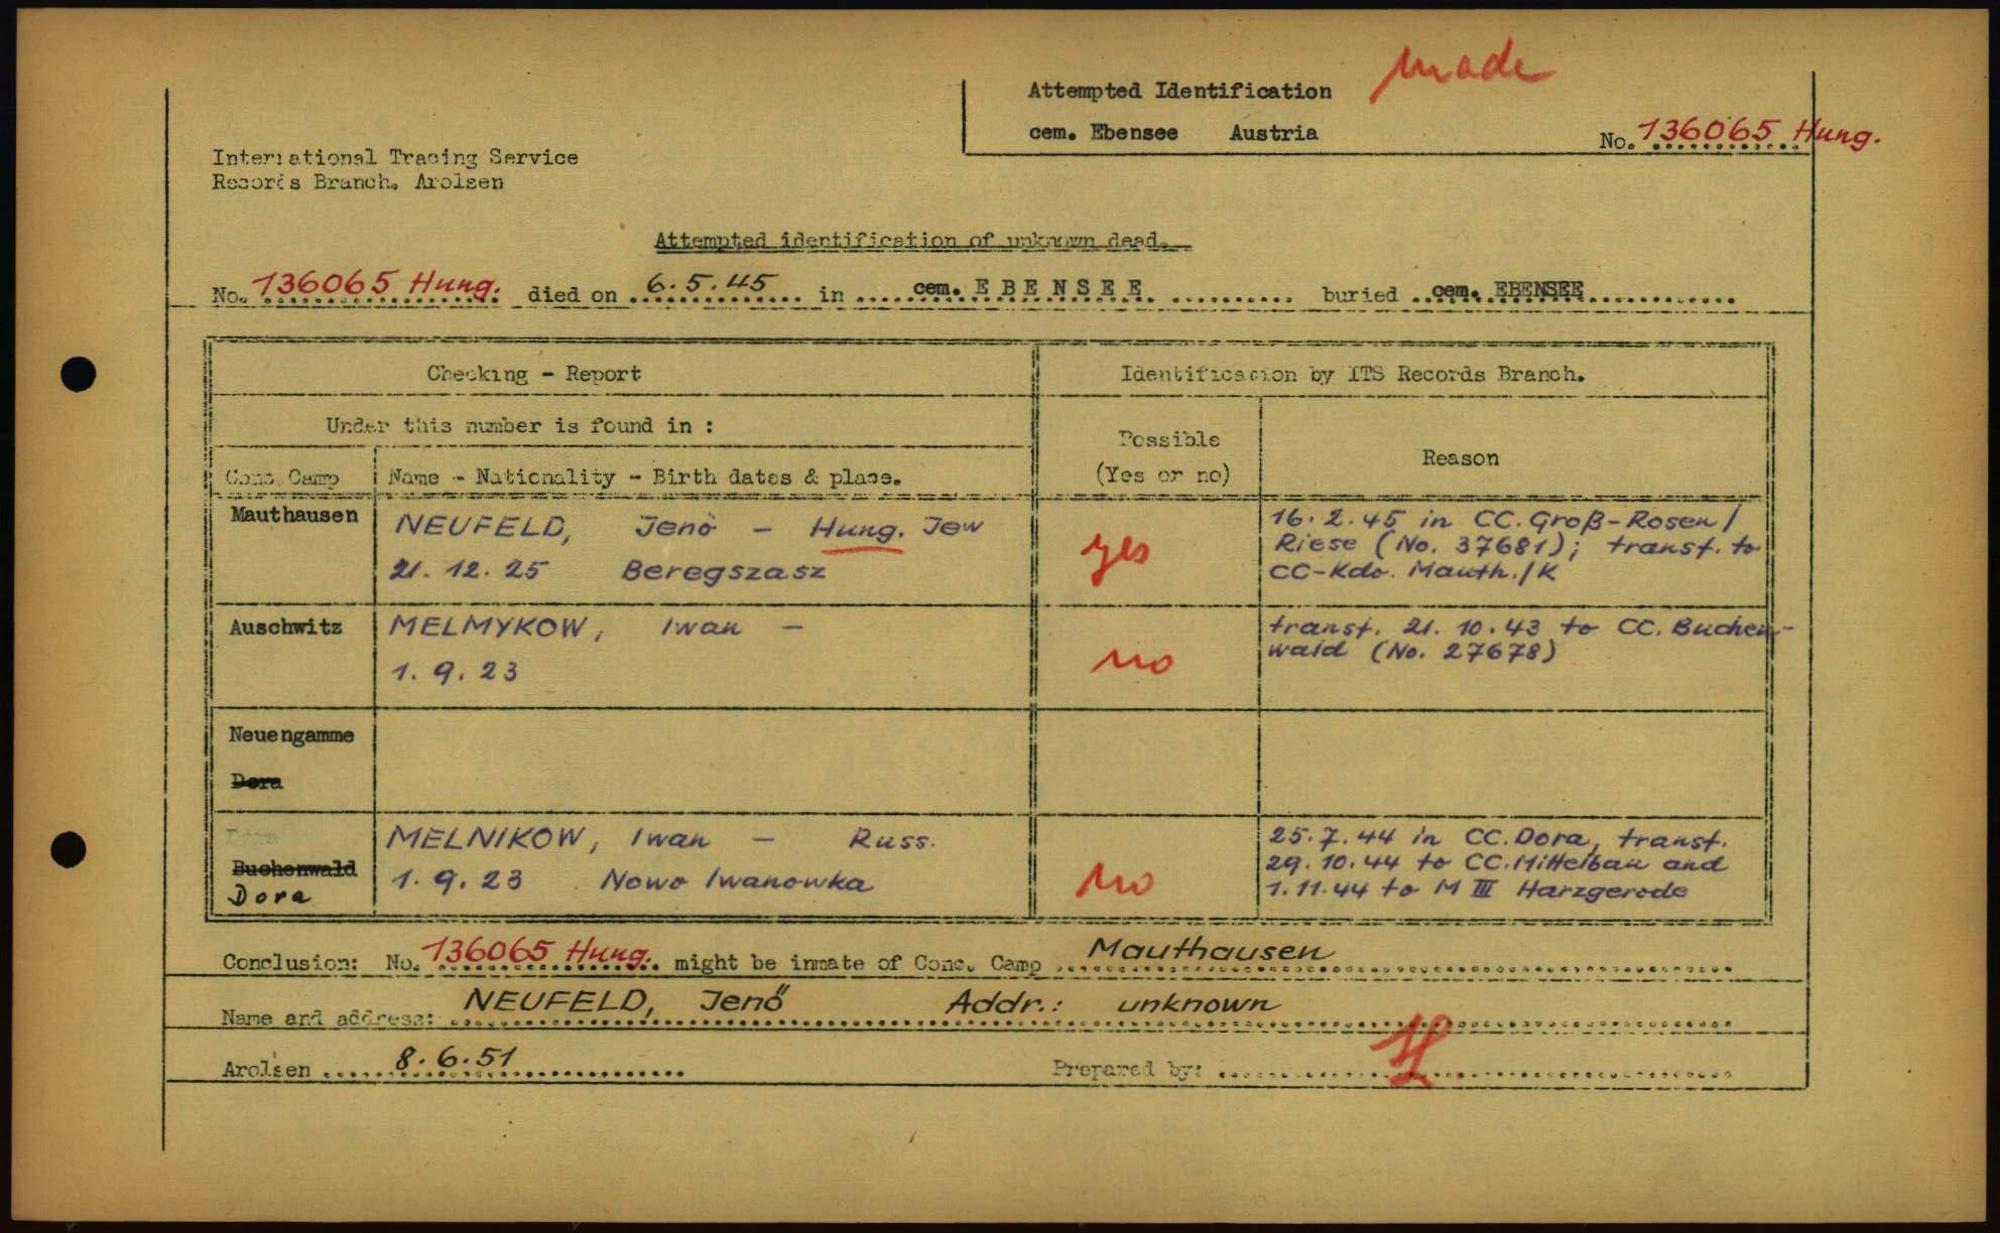 made
Attempted Identification
cem. Ebensee Austria
No. 136065 Hung.
International Tracing Service
Records Branch. Arolsen
Attempted identification of unknown dead.
No. 136065 Hung. died on 6.5.45 in cem. EBENSEE. buried cem. EBENSEE
Checking - Report
Identification by ITS Records Branch.
Under this number is found in :
Possible
(Yes or no)
Reason
Conc. Camp
Name - Nationality - Birth dates & place.
Mauthausen
NEUFELD, Jenö - Hung. Jew
21.12.25 Beregszasz
yes
16.2.45 in CC. Groß-Rosen/
Riese (No. 37681); transf. to
CC-Kdo. Mauth./K
Auschwitz
MELMYKOW, Iwan -
1.9.23
no
transf. 21.10.43 to CC. Buchen-
wald (No. 27678)
Neuengamme
Dora
Buchenwald
Dora
MELNIKOW, Iwan - Russ.
1.9.23 Nowo Iwanowka
no
25.7.44 in CC. Dora, transf.
29.10.44 to CC. Mittelbau and
1.11.44 to M III Harzgerode
Conclusion: No. 136065 Hung. might be inmate of Conc. Camp Mauthausen
Name and address: NEUFELD, Jenő Addr.: unknown
Arolsen 8.6.51
Prepared by: